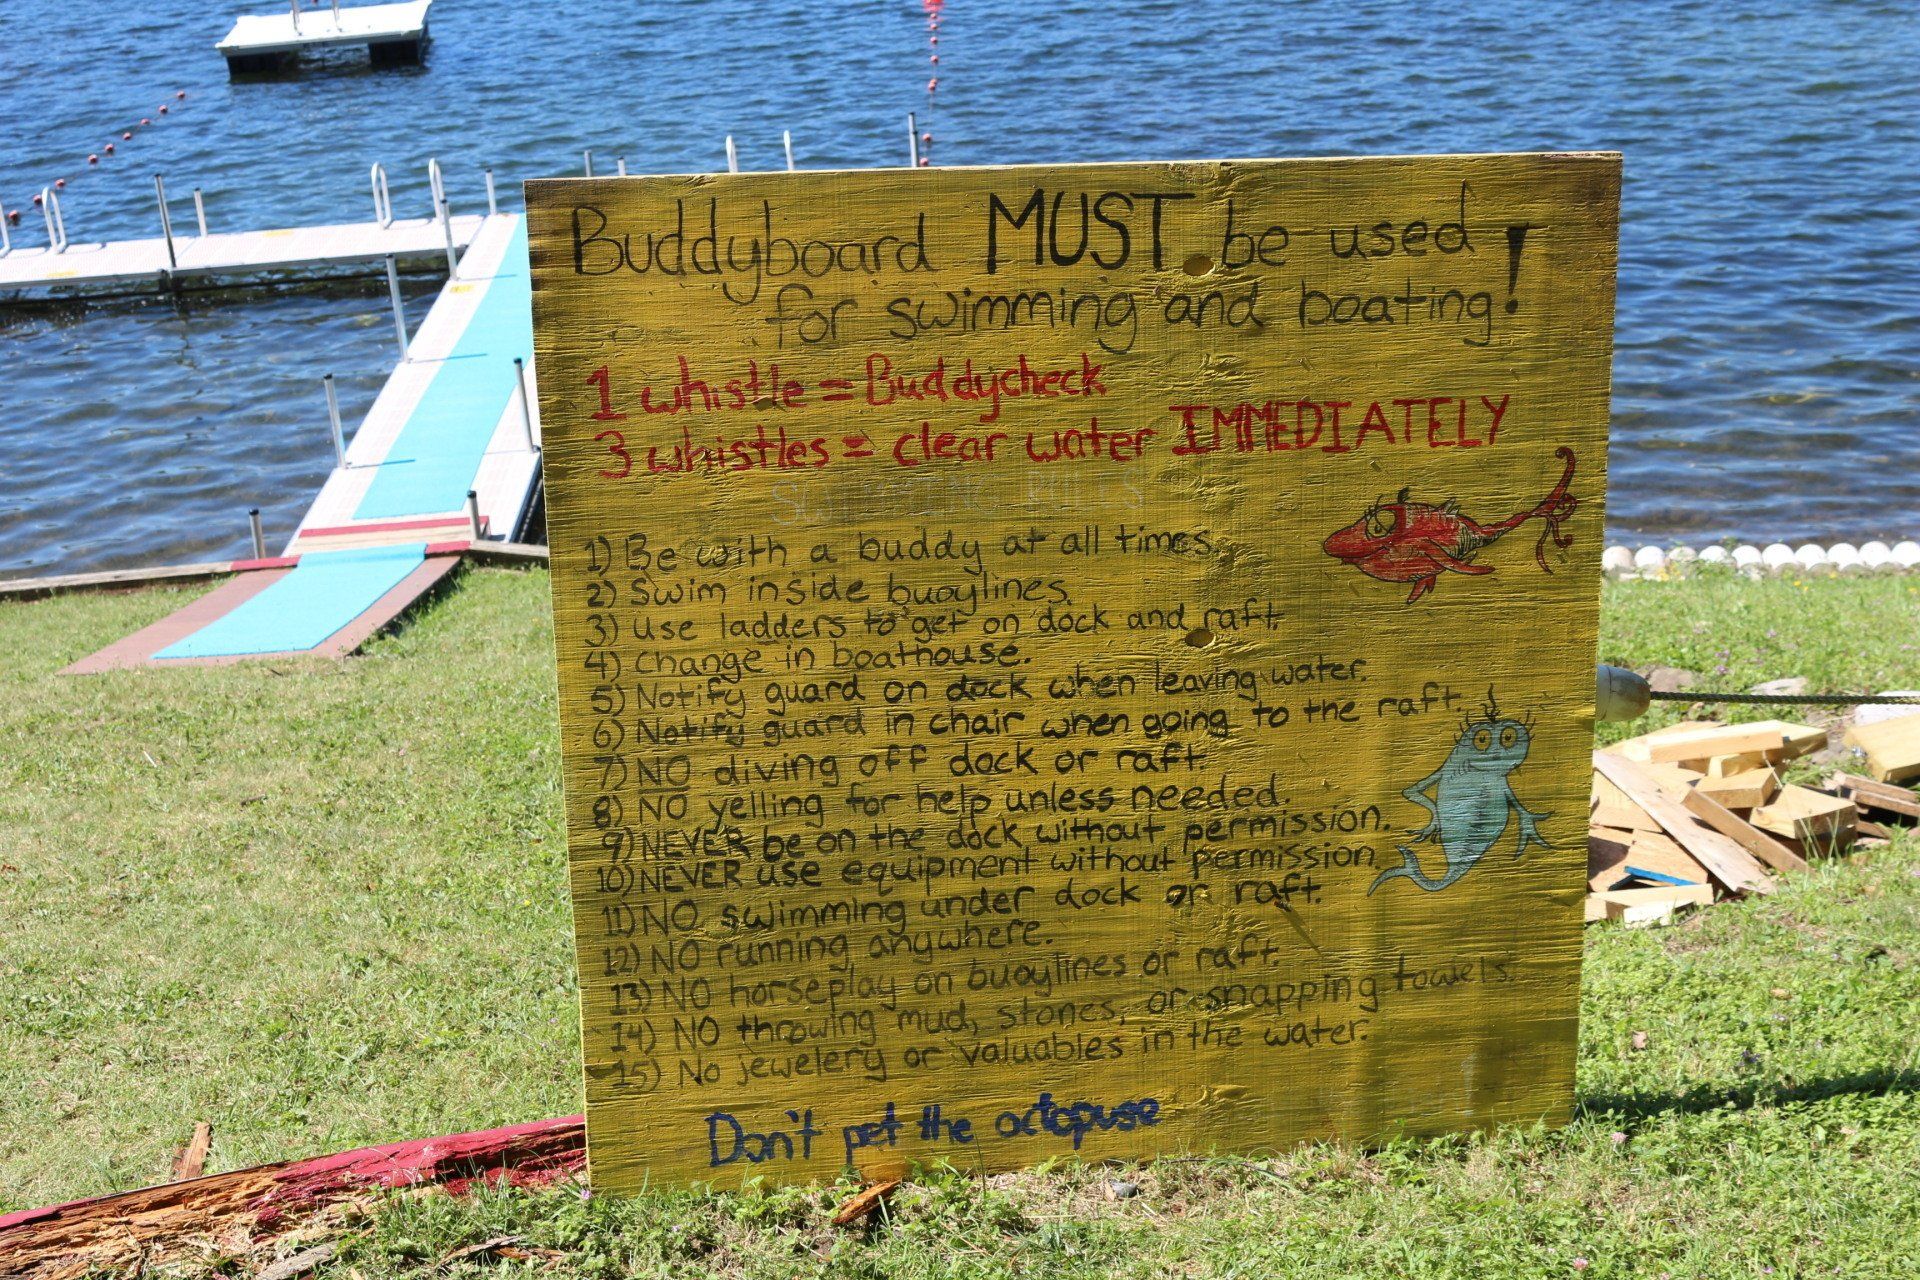 Buddyboard MUST be used
for swimming and boating!
1 whistle = Buddycheck
3 whistles = clear water IMMEDIATELY
SWIMMING RULES
1) Be with a buddy at all times.
2) Swim inside buoylines.
3) use ladders to get on dock and raft.
4) change in boathouse.
5) Notify guard on dock when leaving water.
6) Notify guard in chair when going to the raft.
7) NO diving off dock or raft.
8) NO yelling for help unless needed.
9) NEVER be on the dock without permission.
10) NEVER use equipment without permission.
11) NO swimming under dock or raft.
12) NO running anywhere.
13) NO horseplay on buoylines or raft.
14) NO throwing mud, stones, or snapping towels.
15) No jewelery or valuables in the water.
Don't pet the octopuse